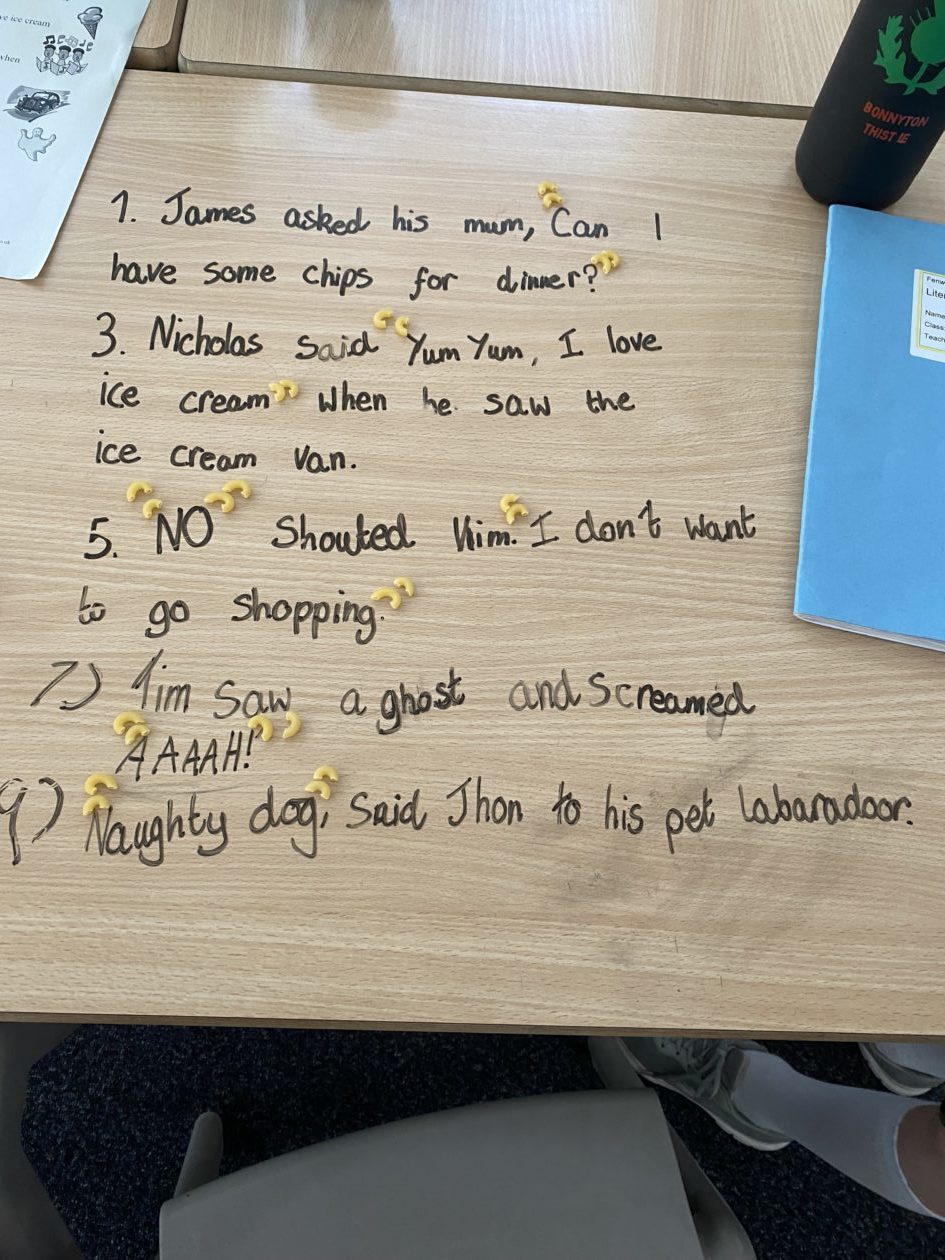 ve ice cream
when
BONNYTON
THISTLE
Fenw
Lite
Name
Class:
Teach
1. James asked his mum, "Can I
have some chips for dinner?"
3. Nicholas said "Yum Yum, I love
ice cream" when he saw the
ice cream van.
5. "NO" Shouted Kim. "I don't want
to go shopping."
7.) Tim saw a ghost and screamed
"AAAAH!"
9.) "Naughty dog", said Jhon to his pet labaradoor.